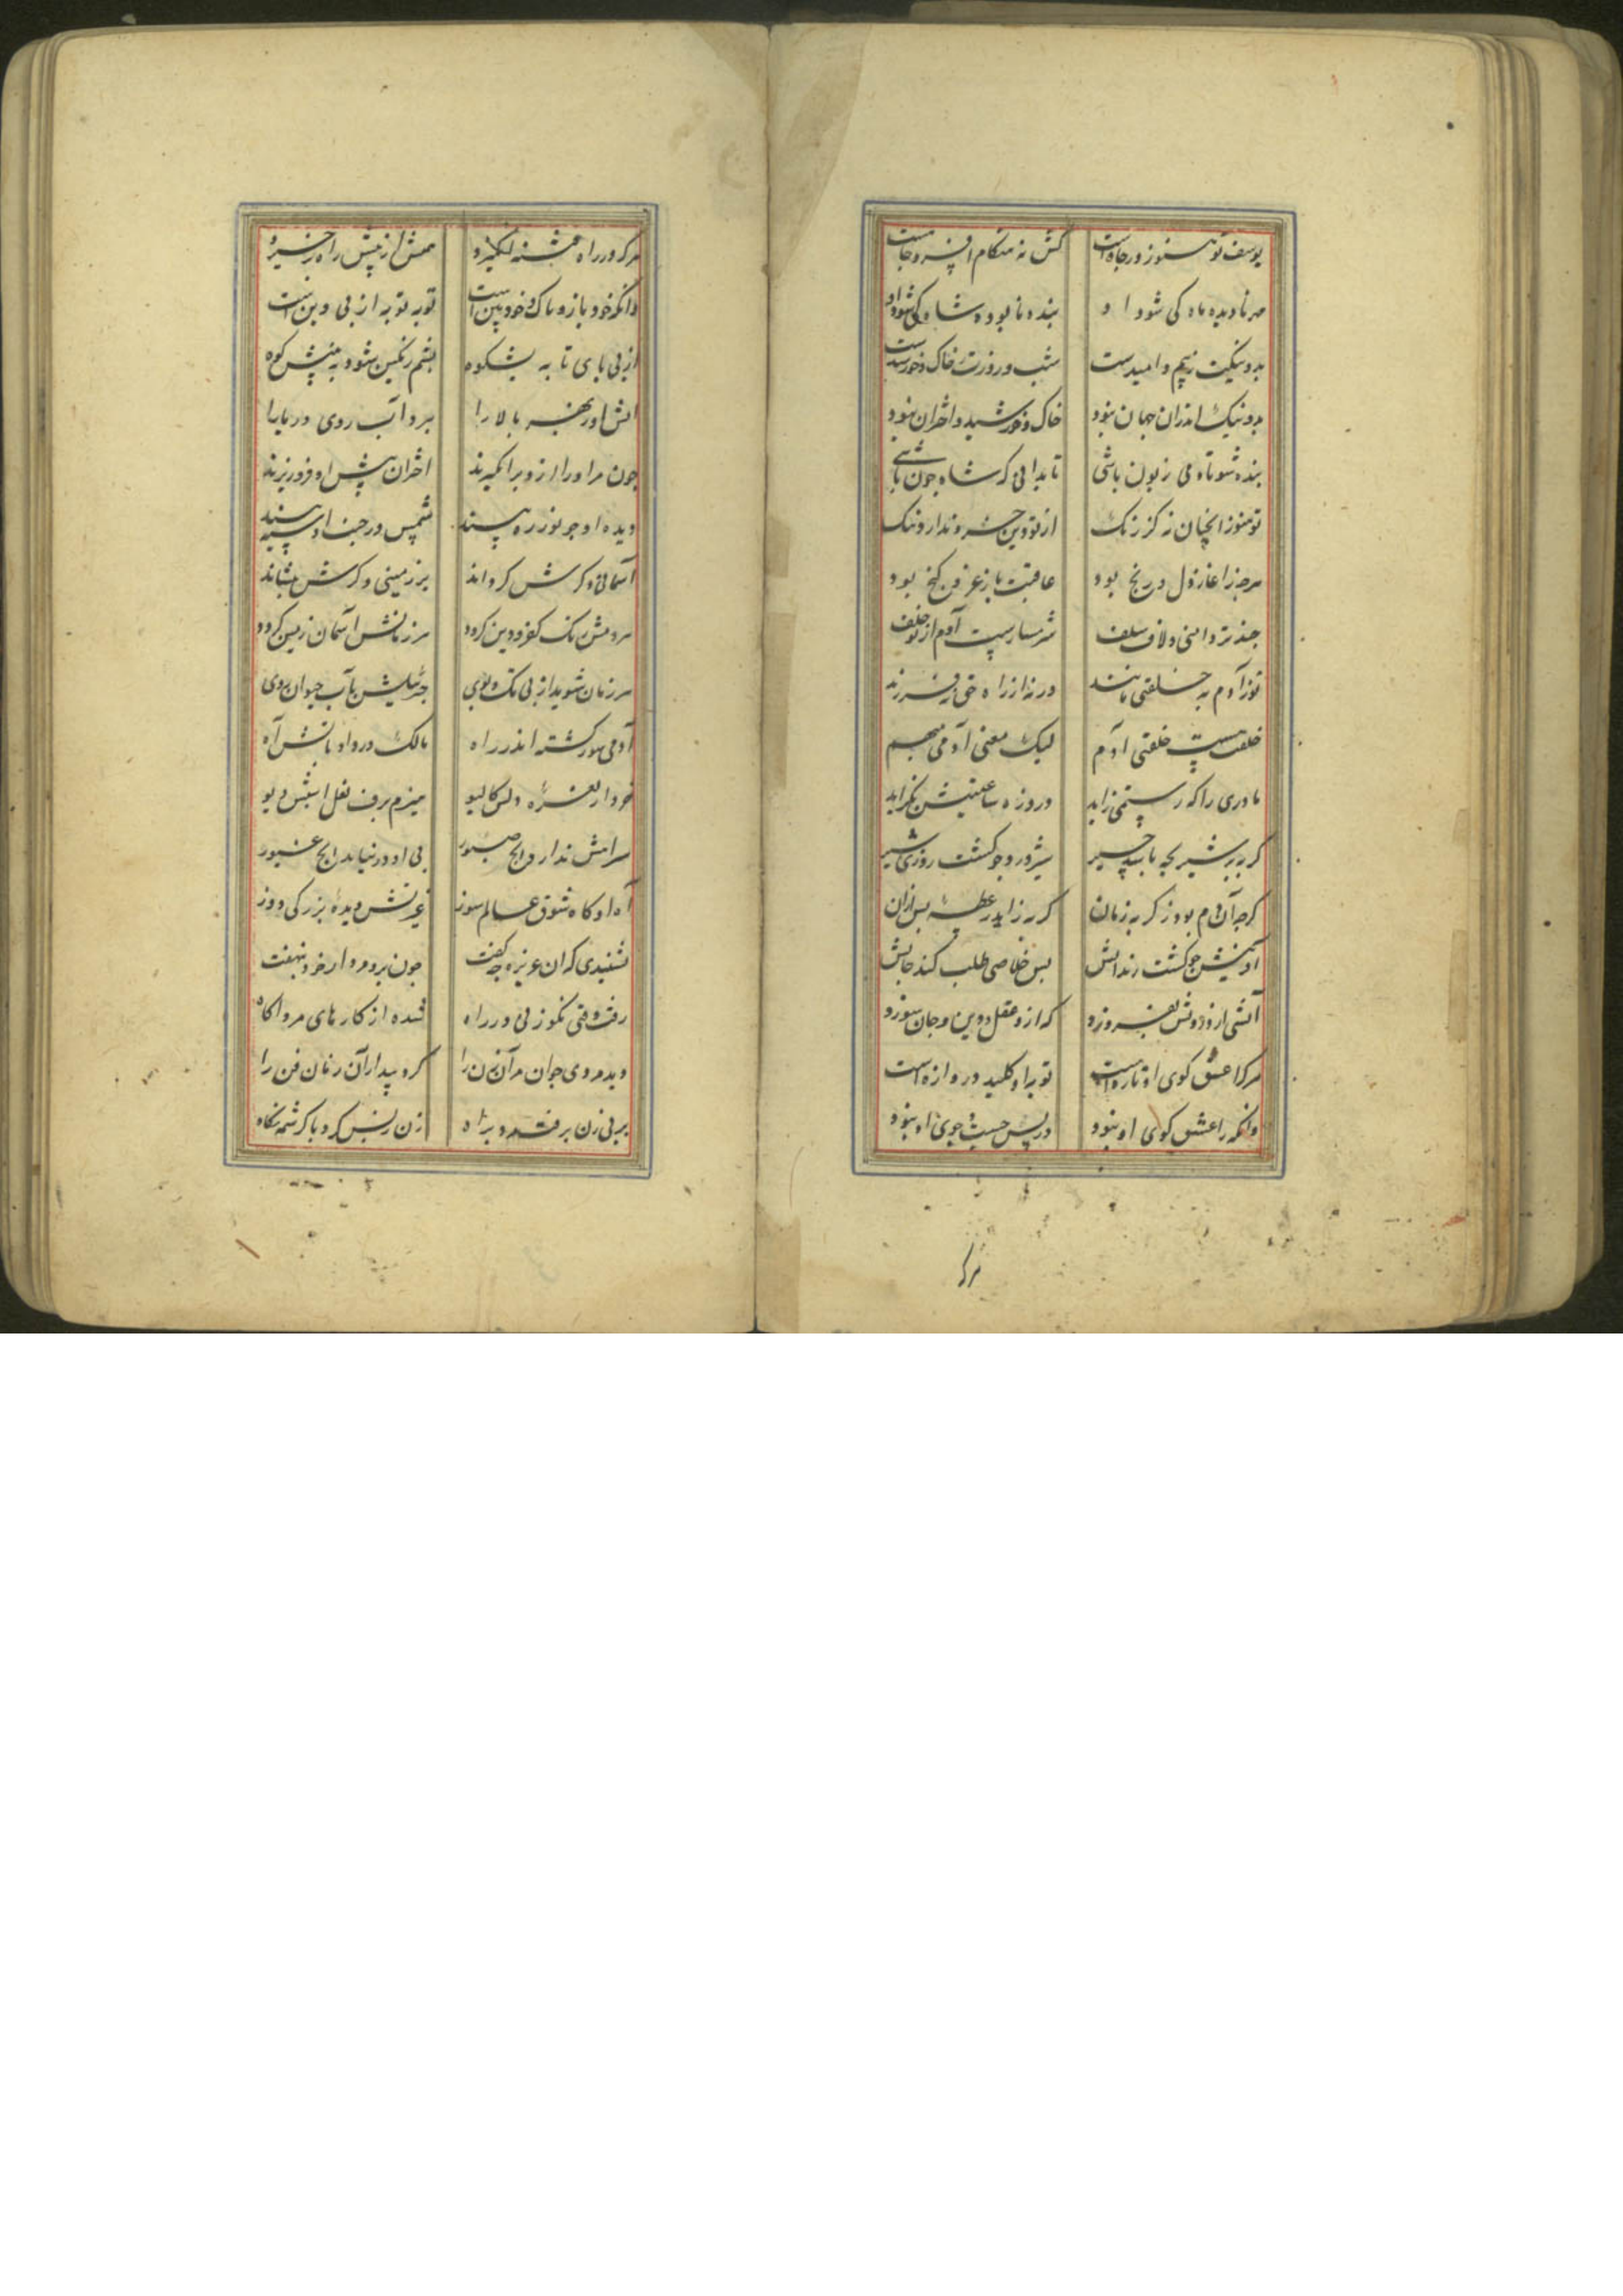 یوسف تو هنوز در چاهست
کش نه هنکام افسر و جاهست
مه نادیده ماه کی شود او
بنده نابوده شاه کی شود او
بد و نیکیت ز بیم و امیدست
شب و روزت ز خاک و خورشیدست
بد و نیک اندران جهان نبود
خاک و خورشید و اختران نبود
بنده شو تا دمی زبون باشی
تا بدانی که شاه چون باشی
از تو دین جز نداردننک
عاقبت باز عز و کنج بود
چند تردامنی و لاف سلف
شرمسارست آدم از تو خلف
تو ز آدم به خلقتی مانند
ورنه از راه حق نه فرزند
خلقتست خلقتی آدم
لیک معنی آدمی مبهم
مادری را که رستمی زاید
درد زه ساعتیش بکزاید
کربه بر شیر بچه باشد چیر
شیر درد چو کشت روزی شیر
کرچه آن دم بود ز کربه زمان
کربه زاید ز عطسه پس ازان
آدمیش چو کشت زندانش
پس خلاصی طلب کند جانش
آتشی از درونش بفروزد
که ازو عقل و دین و جان سوزد
هرکرا عشق کوی او تازه است
توبه او کلید دروازه است
وانکه را عشق کوی او نبود
در پس جست و جوی او نبود
هرکه
هرکه در راه عشق
همش از پیش راه برخیزد
وانکه خود باز و پاک و خودبین است
توبه توبه از بی دین است
از پی پای تا به شکوه
پشم رنکین شود به پیش کوه
آتش آورد بهر بالا را
برد آب روی دریا را
چون مر او را ازو برانکیزند
اختران پیش او فرو ریزند
دیده او چو نور ره بیند
شمس در جنب او سیه بیند
آسمانی دکرش کرداند
بر زمینی دکرش بنشاند
هر دمش رنک کفر و دین کردد
هر زمانش آسمان زمین کردد
هر زمان شوید از پی تک و پوی
جبرئیلش بآب حیوان روی
آدمی سور کشته اندر راه
مالک درد او باتش آه
هیزم برف نعل اسبش دیو
سرانش ندارد ایچ صبور
بی او در نیاید ایچ غیور
آه او کاه شوق عالم سوز
غیرتش دیده بزرکی دوز
نشنیدی که آن عزیزه چه کفت
چون برو مرد راز خود بنهفت
رفت وقتی نکو زنی در راه
شده از کارهای مرد آکاه
دید مردی جوان مر آن زن را
کرد پیدا در آن زمان فن را
بر پی زن برفت مرد براه
زن ز پس کرد با کرشمه نکاه